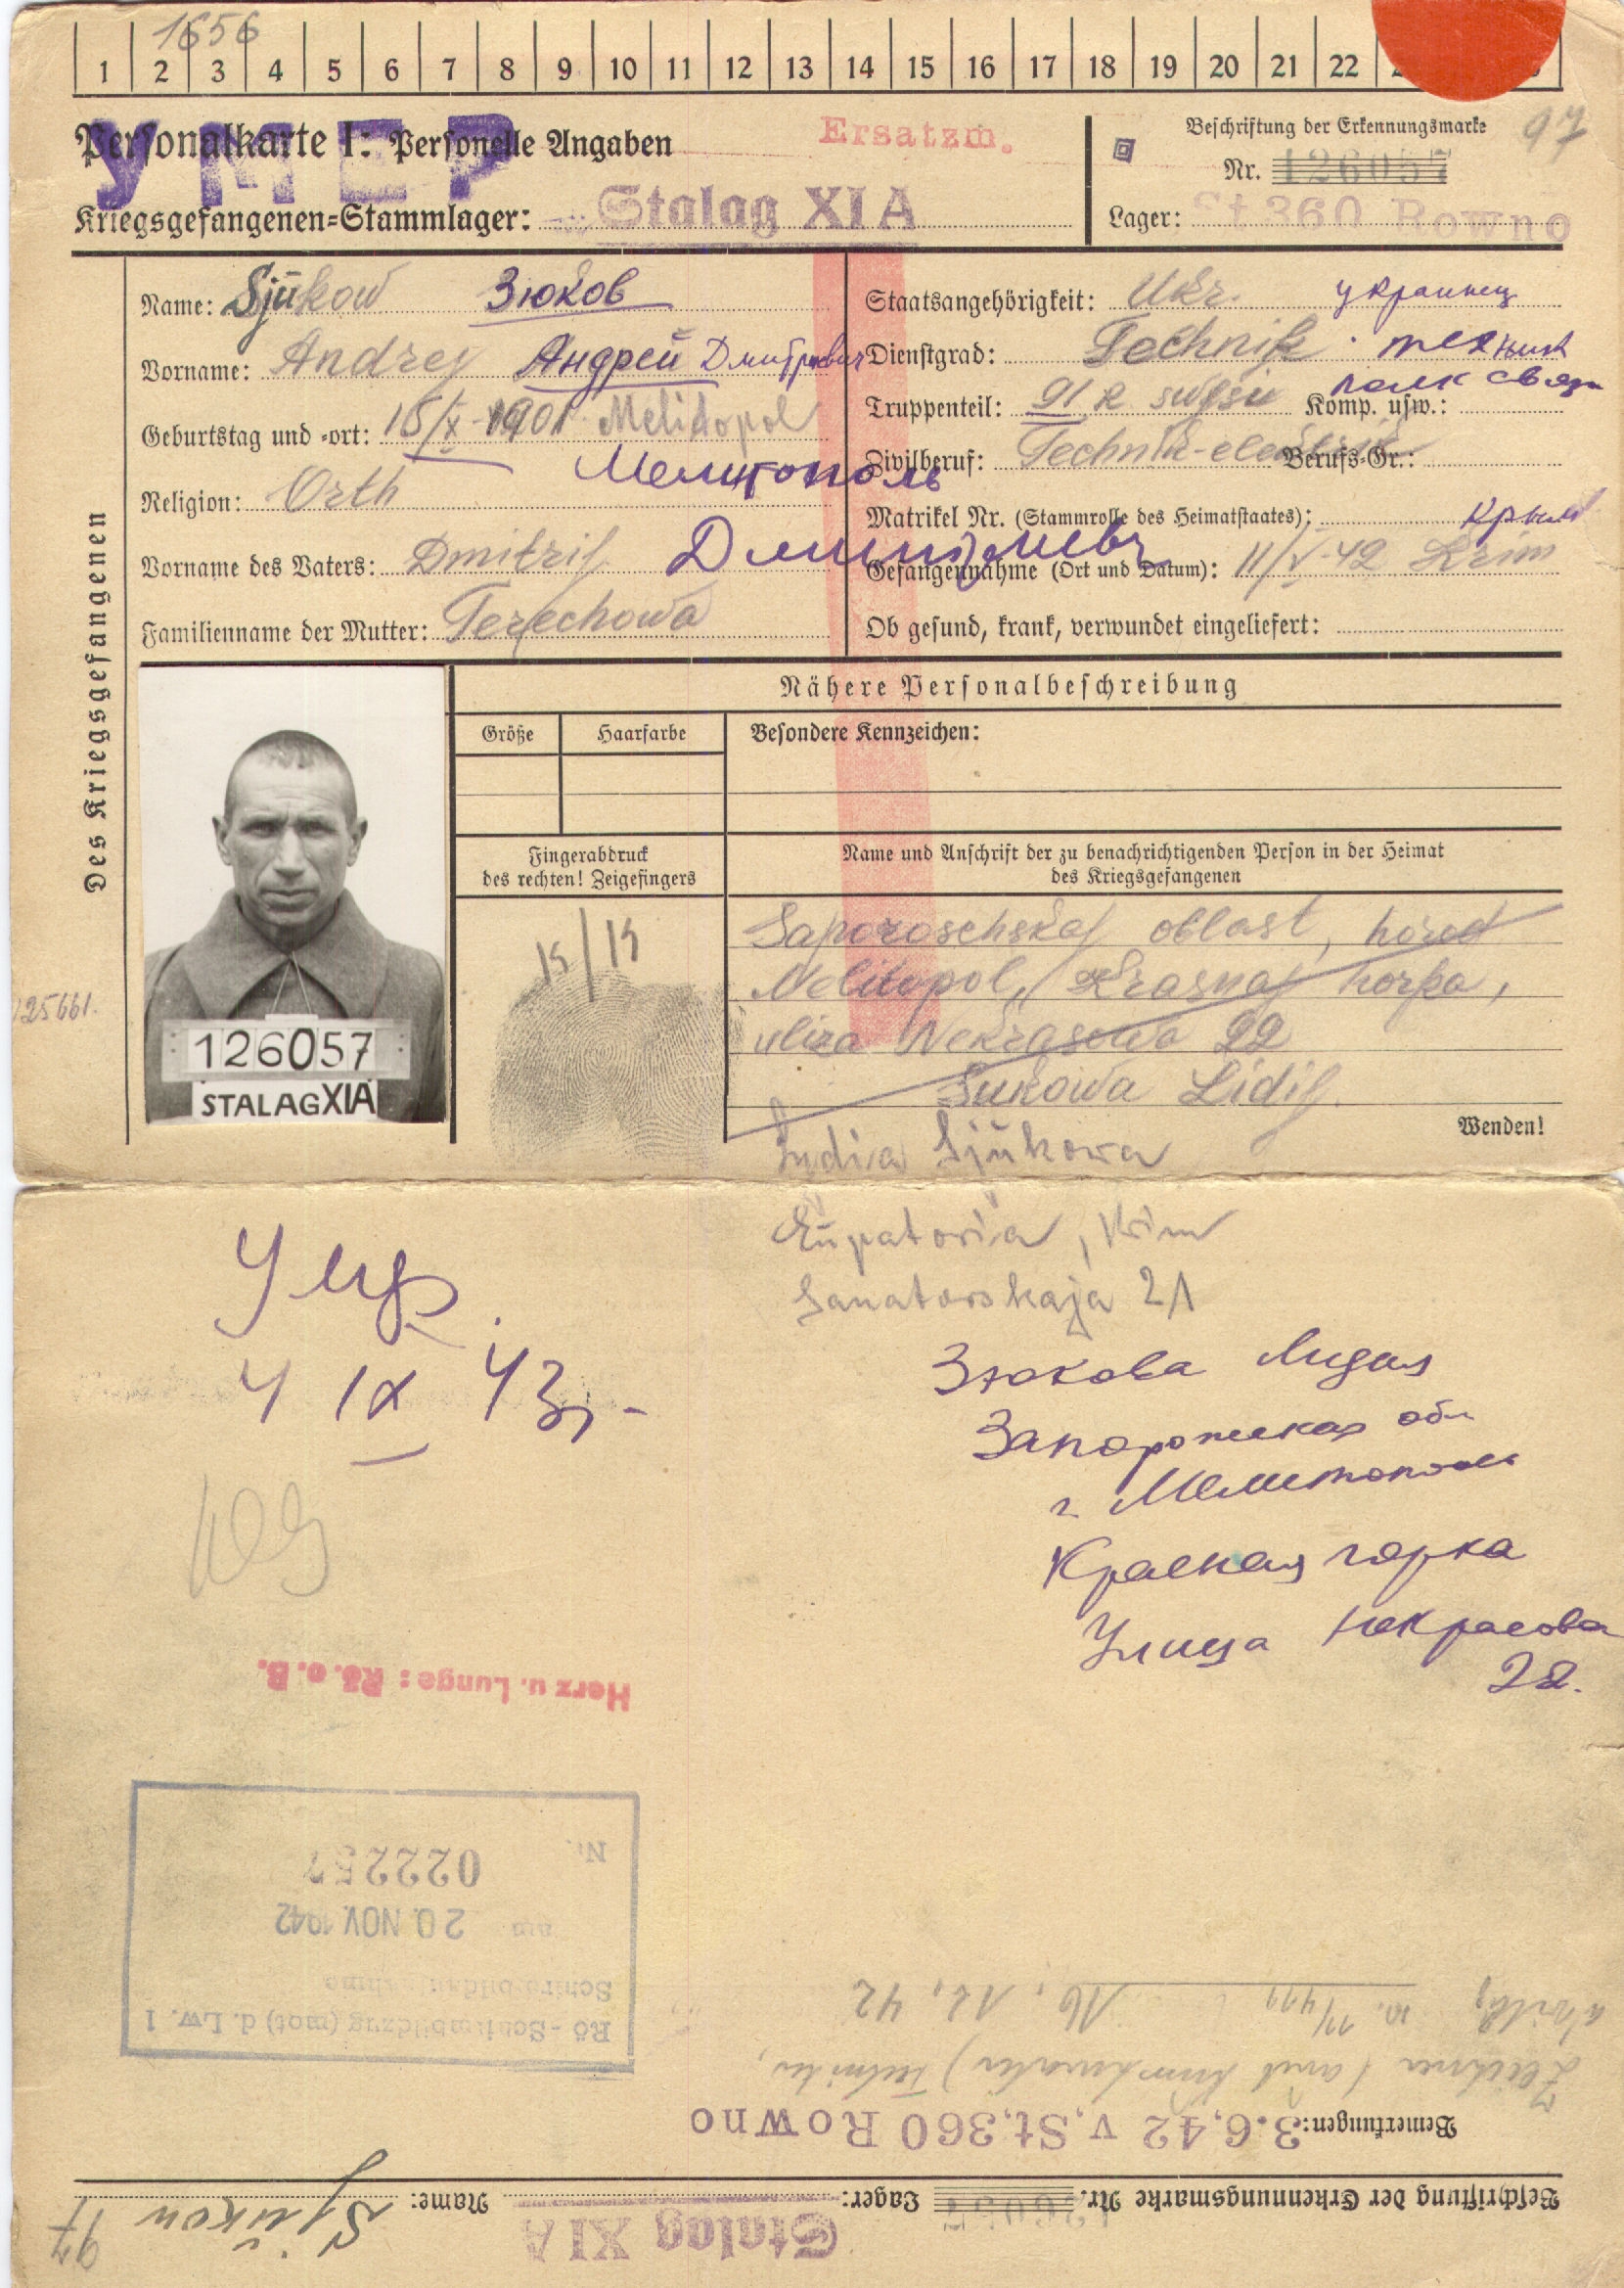 1656
1 2 3 4 5 6 7 8 9 10 11 12 13 14 15 16 17 18 19 20 21 22
Personalkarte I: Personelle Angaben
УМЕР
Ersatzm.
Kriegsgefangenen-Stammlager: Stalag XI A
Beschriftung der Erkennungsmarke
97
Nr. 126057
Lager: St 360 Rowno
Des Kriegsgefangenen
Name: Sjükow Зюков
Vorname: Andrej Андрей Дмитриевич
Geburtstag und -ort: 15/X 1901 Melidopol
Мелитополь
Religion: Orth
Vorname des Vaters: Dmitrij
Familienname der Mutter: Terechowa
Staatsangehörigkeit: Ukr. украинец
Dienstgrad: Technik техник
полк связи
Truppenteil: 91 R Komp. usw.:
Zivilberuf: Technik-elektrik Berufs-Gr.:
Matrikel Nr. (Stammrolle des Heimatstaates):
Крым
Gefangennahme (Ort und Datum): 11/V-42 Krim
Ob gesund, krank, verwundet eingeliefert:
Nähere Personalbeschreibung
Größe
Haarfarbe
Besondere Kennzeichen:
Fingerabdruck
des rechten! Zeigefingers
15/15
Name und Anschrift der zu benachrichtigenden Person in der Heimat
des Kriegsgefangenen
Saporoschskaj oblast, horod
Melitopol, Krasnaj horka,
uliza Nekrasowa 22
Sukowa Lidij
Wenden!
125661.
126057
STALAG XIA
Lydia Sjükowa
Eupatoria, Krim
Sanatorskaja 21
Умер.
4 IX 43г.
Зюкова Лидия
Запорожская обл
г. Мелитополь
Красная горка
Улица Некрасова
22.
Herz u. Lunge: Rö. o. B.
Rö-Schirmbildzug (mot) d. Lw. 1
Schirmbildaufnahme
am 20. NOV. 1942
Nr. 022257
Beschriftung der Erkennungsmarke Nr. 126057 Lager: Stalag XI A Name: Sjükow
97
Bemerkungen: 3.6.42 v. St.360 Rowno
16.12.42